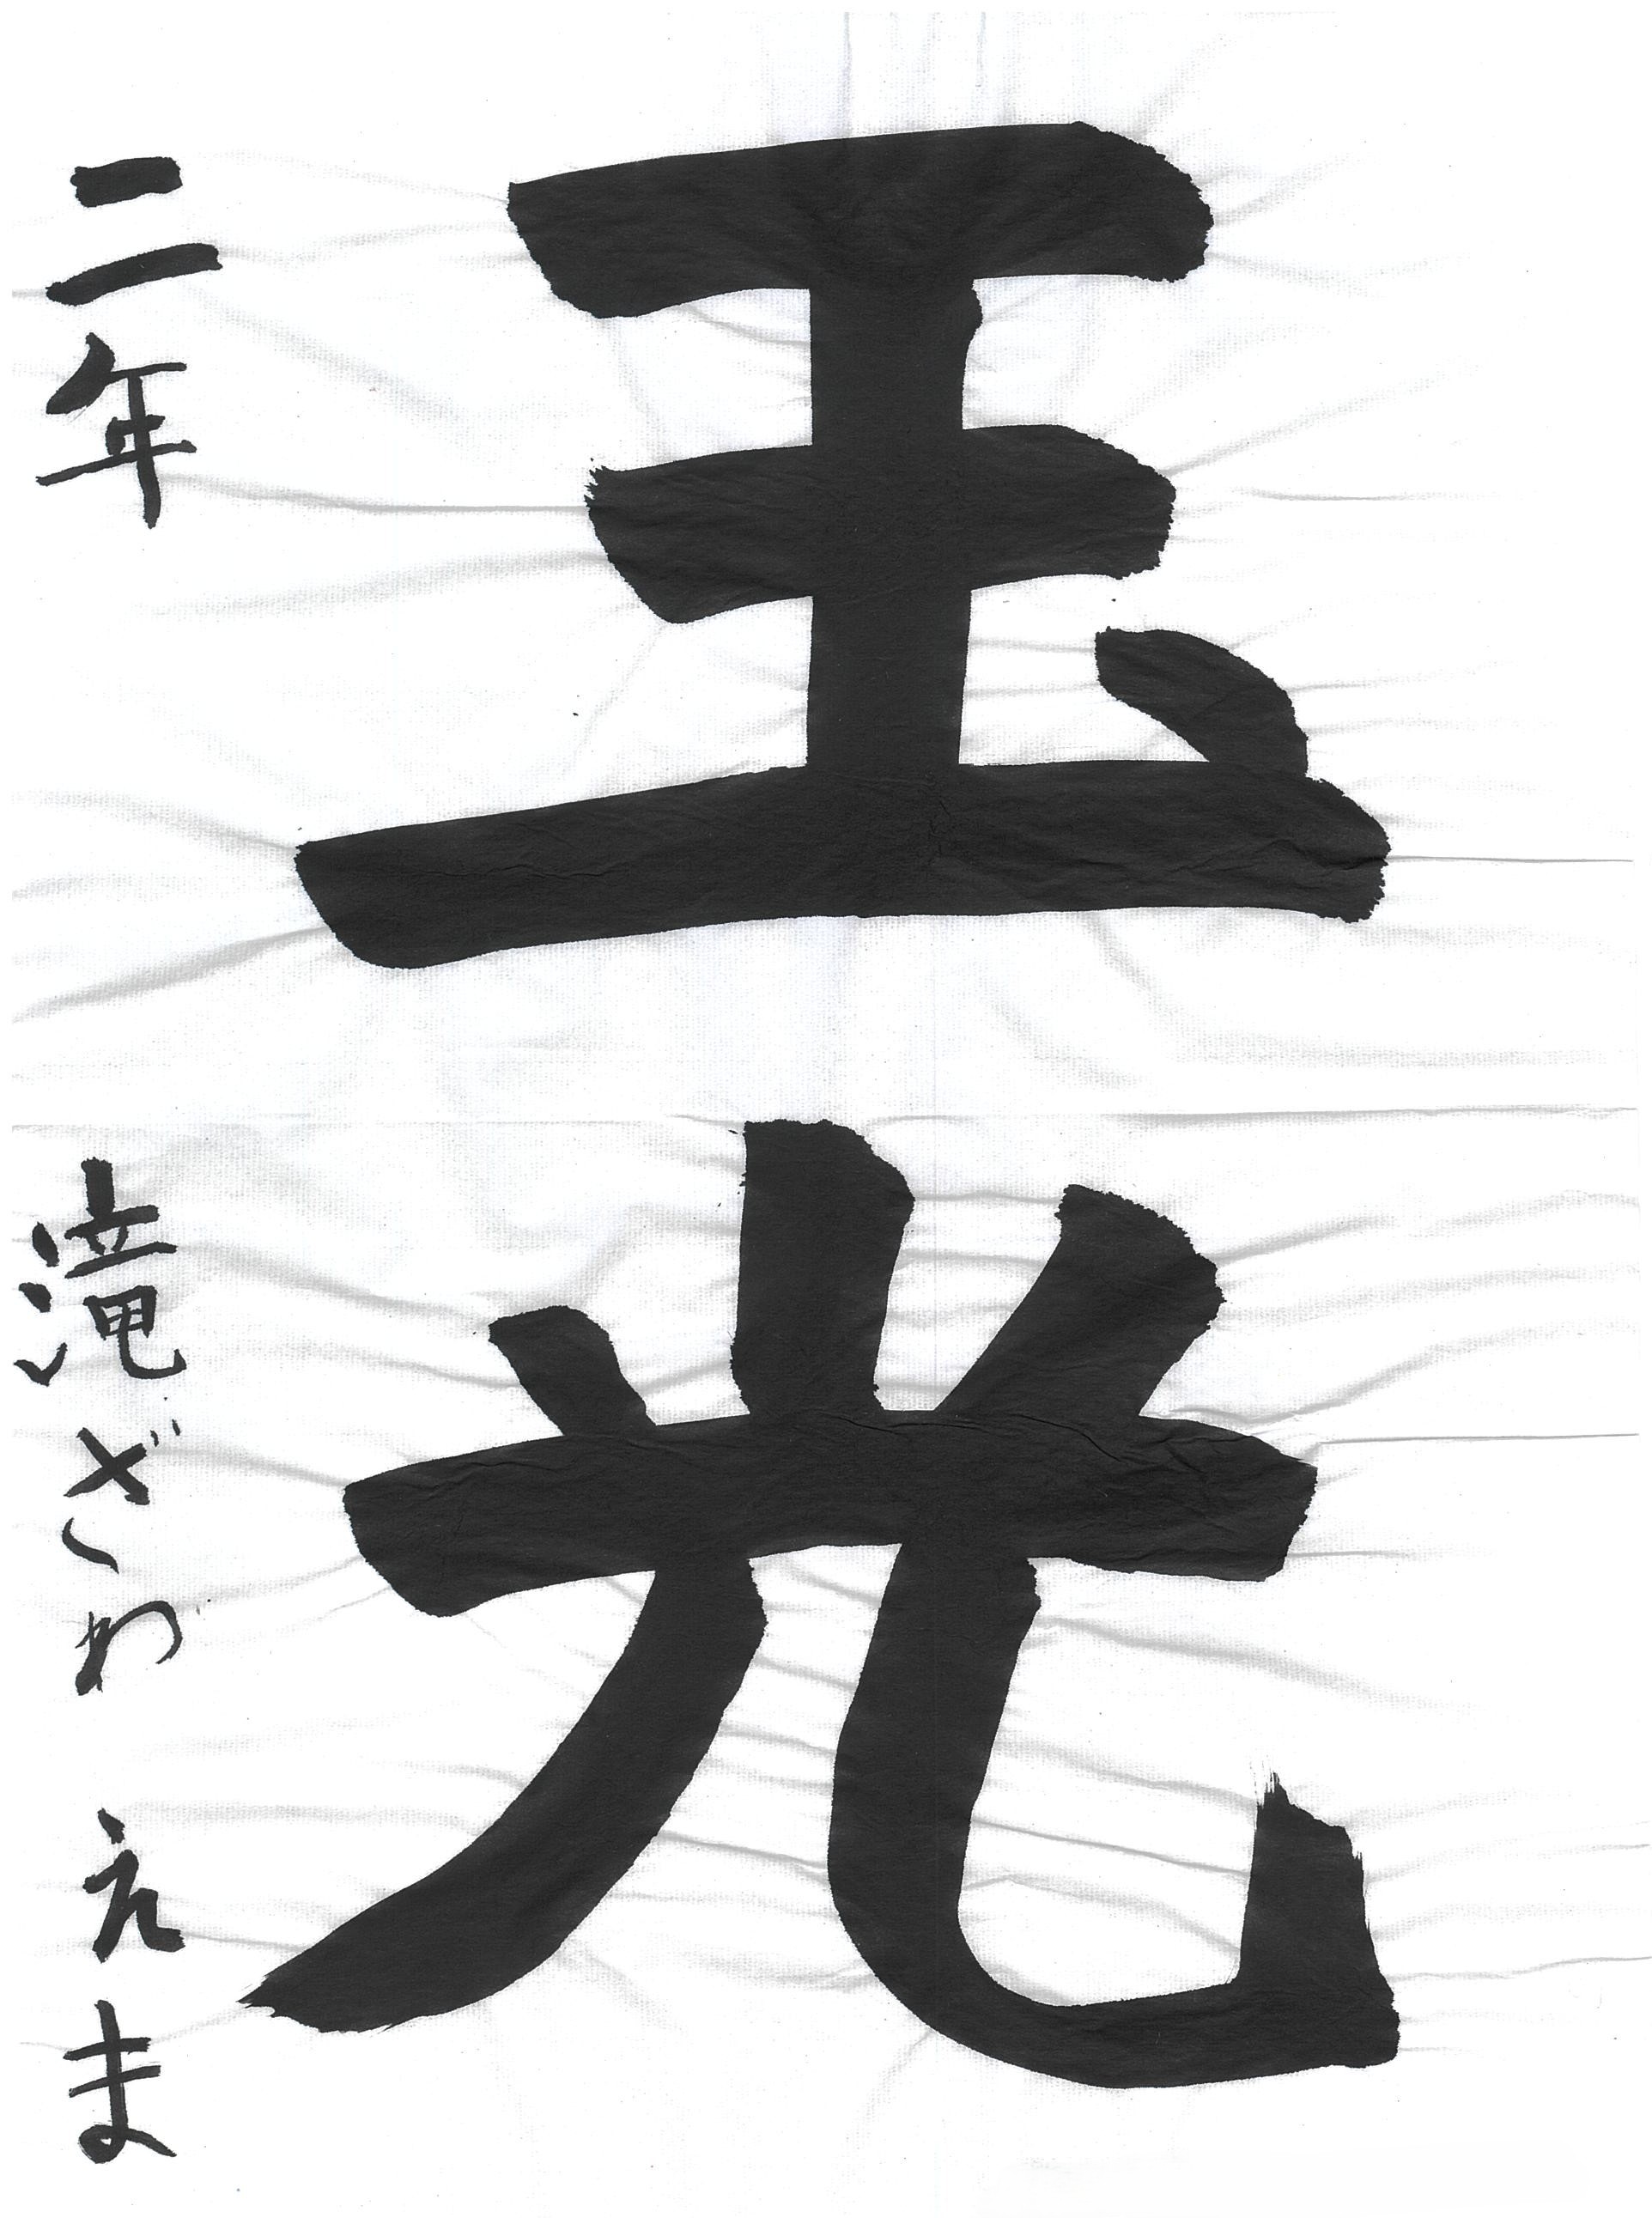 玉光
二年 滝ざわ えま